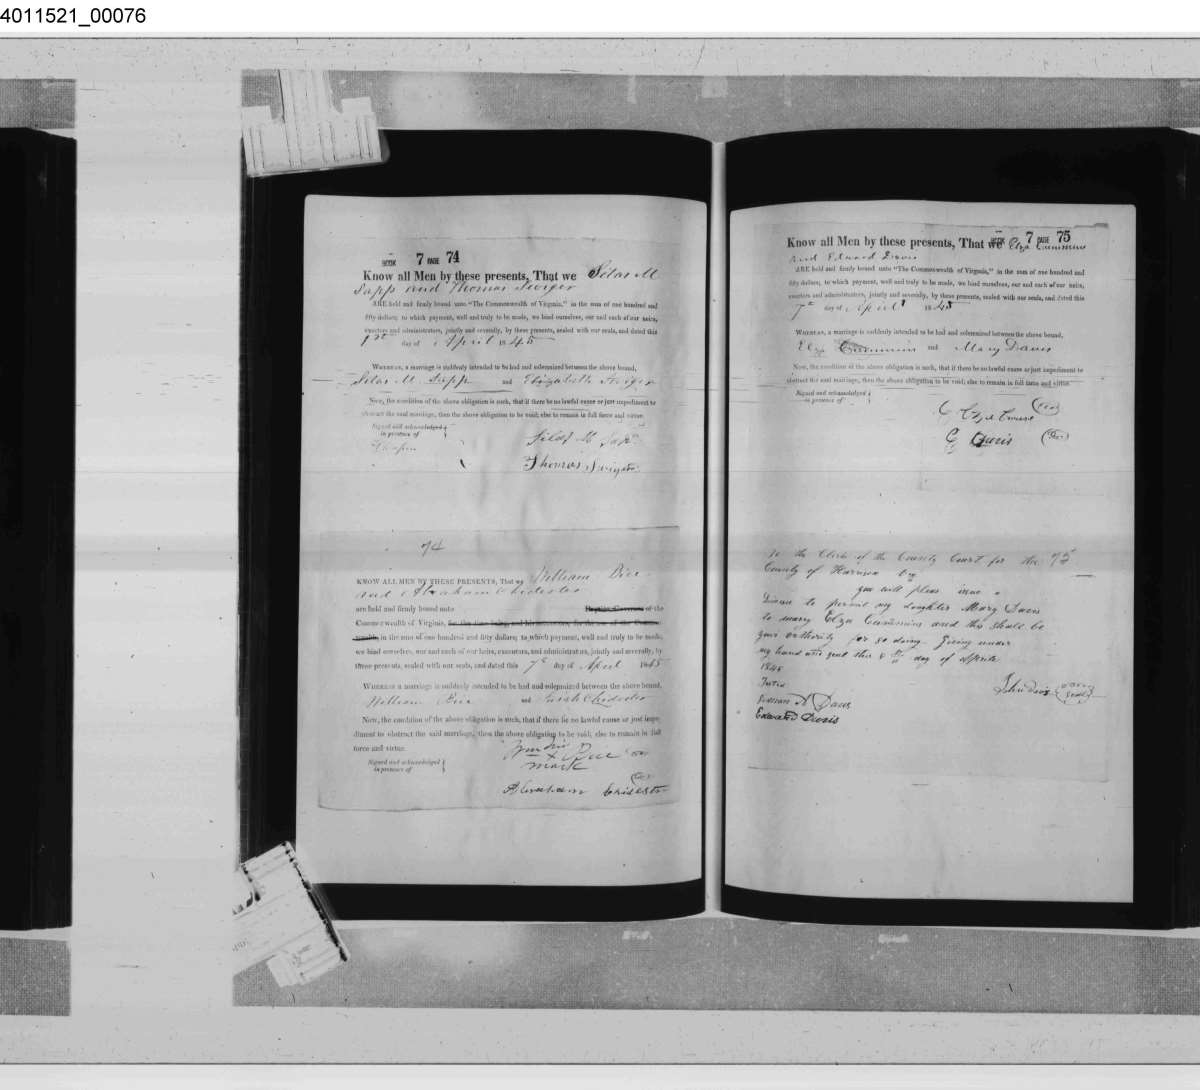 4011521_00076
BOOK 7 PAGE 74
Know all Men by these presents, That we Silas M
Sapp and Thomas Swiger
ARE held and firmly bound unto "The Commonwealth of Virginia," in the sum of one hundred and
fifty dollars; to which payment, well and truly to be made, we bind ourselves, our and each of our heirs,
executors and administrators, jointly and severally, by these presents, sealed with our seals, and dated this
1st day of April 1845
WHEREAS, a marriage is suddenly intended to be had and solemnized between the above bound,
Silas M. Sapp and Elizabeth Swiger
Now, the condition of the above obligation is such, that if there be no lawful cause or just impediment to
obstruct the said marriage, then the above obligation to be void; else to remain in full force and virtue.
Signed and acknowledged
in presence of
Silas M Sapp
Thomas Swiger
74
KNOW ALL MEN BY THESE PRESENTS, That we William Bice
and Abraham Chidester
are held and firmly bound unto of the
Commonwealth of Virginia, for the time being, and his successors, for the use of the Common-
wealth, in the sum of one hundred and fifty dollars; to which payment, well and truly to be made,
we bind ourselves, our and each of our heirs, executors, and administrators, jointly and severally, by
these presents, sealed with our seals, and dated this 7th day of April 1845
WHEREAS a marriage is suddenly intended to be had and solemnized between the above bound,
William Bice and Sarah Chidester
Now, the condition of the above obligation is such, that if there be no lawful cause or just impe-
diment to obstruct the said marriage, then the above obligation to be void; else to remain in full
force and virtue.
Signed and acknowledged
in presence of
Wm his x Bice
mark
Abraham Chidester
BOOK 7 PAGE 75
Know all Men by these presents, That we Elza Cummins
and Edward Davis
ARE held and firmly bound unto "The Commonwealth of Virginia," in the sum of one hundred and
fifty dollars, to which payment, well and truly to be made, we bind ourselves, our and each of our heirs,
executors and administrators, jointly and severally, by these presents, sealed with our seals, and dated this
7th day of April 1845
WHEREAS, a marriage is suddenly intended to be had and solemnized between the above bound,
Elza Cummins and Mary Davis
Now, the condition of the above obligation is such, that if there be no lawful cause or just impediment to
obstruct the said marriage, then the above obligation to be void; else to remain in full force and virtue.
Signed and acknowledged
in presence of
Davis
To the Clerk of the County Court for the 75
County of Harrison
you will pleas issue a
to permit my daughter Mary Davis
to marry Elza Cummins and this shall be
your authority for so doing. Giving under
my hand and seal this day of Aprile
1845
John Davis seal
A Davis
Edward Davis